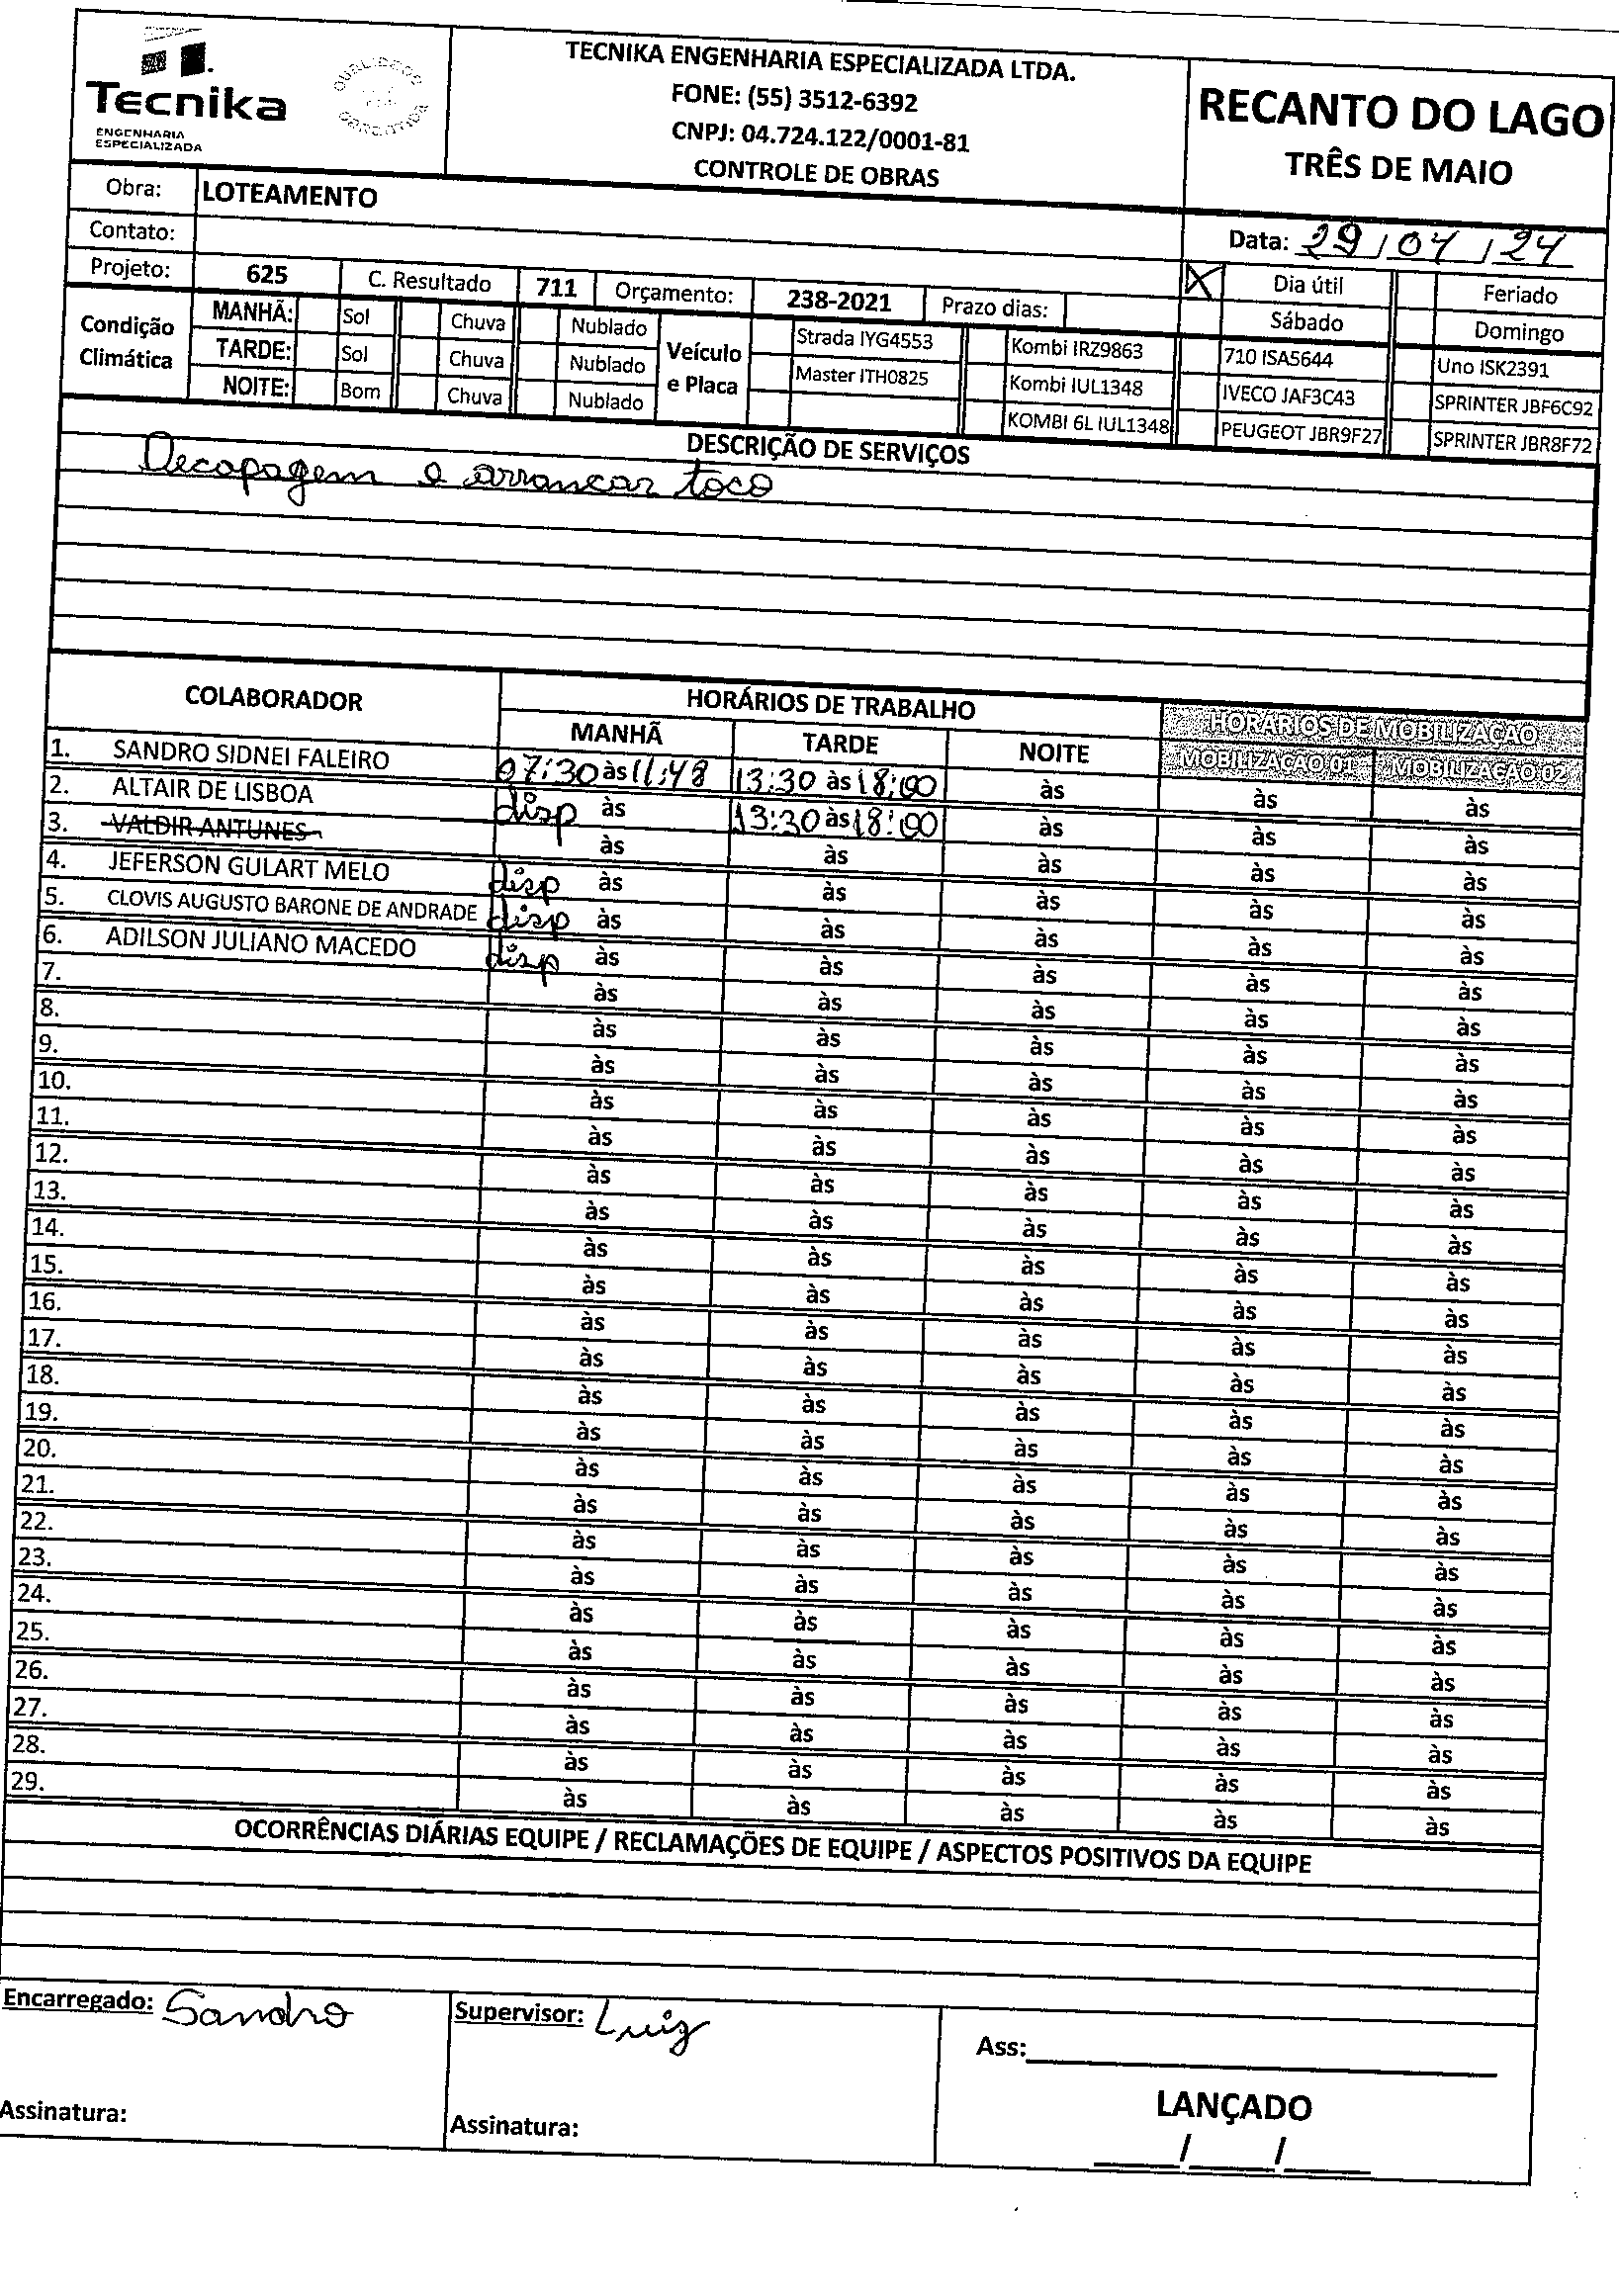 Tecnika
ENGENHARIA
ESPECIALIZADA
TECNIKA ENGENHARIA ESPECIALIZADA LTDA.
FONE: (55) 3512-6392
CNPJ: 04.724.122/0001-81
CONTROLE DE OBRAS
RECANTO DO LAGO
TRÊS DE MAIO
Obra: LOTEAMENTO
Contato:
Data: 29/04/24
Projeto: 625 C. Resultado 711 Orçamento: 238-2021 Prazo dias:
X Dia útil Feriado
Sábado Domingo
Condição Climática
MANHÃ: Sol Chuva Nublado
TARDE: Sol Chuva Nublado
NOITE: Bom Chuva Nublado
Veículo e Placa
Strada IYG4553 Kombi IRZ9863 710 ISA5644 Uno ISK2391
Master ITH0825 Kombi IUL1348 IVECO JAF3C43 SPRINTER JBF6C92
KOMBI 6L IUL1348 PEUGEOT JBR9F27 SPRINTER JBR8F72
DESCRIÇÃO DE SERVIÇOS
Decapagem e arrancar toco
COLABORADOR HORÁRIOS DE TRABALHO HORÁRIOS DE MOBILIZAÇÃO
MANHÃ TARDE NOITE MOBILIZAÇÃO 01 MOBILIZAÇÃO 02
1. SANDRO SIDNEI FALEIRO 07:30 às 11:48 13:30 às 18:00 às às às
2. ALTAIR DE LISBOA disp às 13:30 às 18:00 às às às
3. VALDIR ANTUNES às às às às às
4. JEFERSON GULART MELO disp às às às às às
5. CLOVIS AUGUSTO BARONE DE ANDRADE disp às às às às às
6. ADILSON JULIANO MACEDO disp às às às às às
7. às às às às às
8. às às às às às
9. às às às às às
10. às às às às às
11. às às às às às
12. às às às às às
13. às às às às às
14. às às às às às
15. às às às às às
16. às às às às às
17. às às às às às
18. às às às às às
19. às às às às às
20. às às às às às
21. às às às às às
22. às às às às às
23. às às às às às
24. às às às às às
25. às às às às às
26. às às às às às
27. às às às às às
28. às às às às às
29. às às às às às
OCORRÊNCIAS DIÁRIAS EQUIPE / RECLAMAÇÕES DE EQUIPE / ASPECTOS POSITIVOS DA EQUIPE
Encarregado: Sandro
Supervisor: Luiz
Ass:
LANÇADO
Assinatura:
Assinatura:
/ /